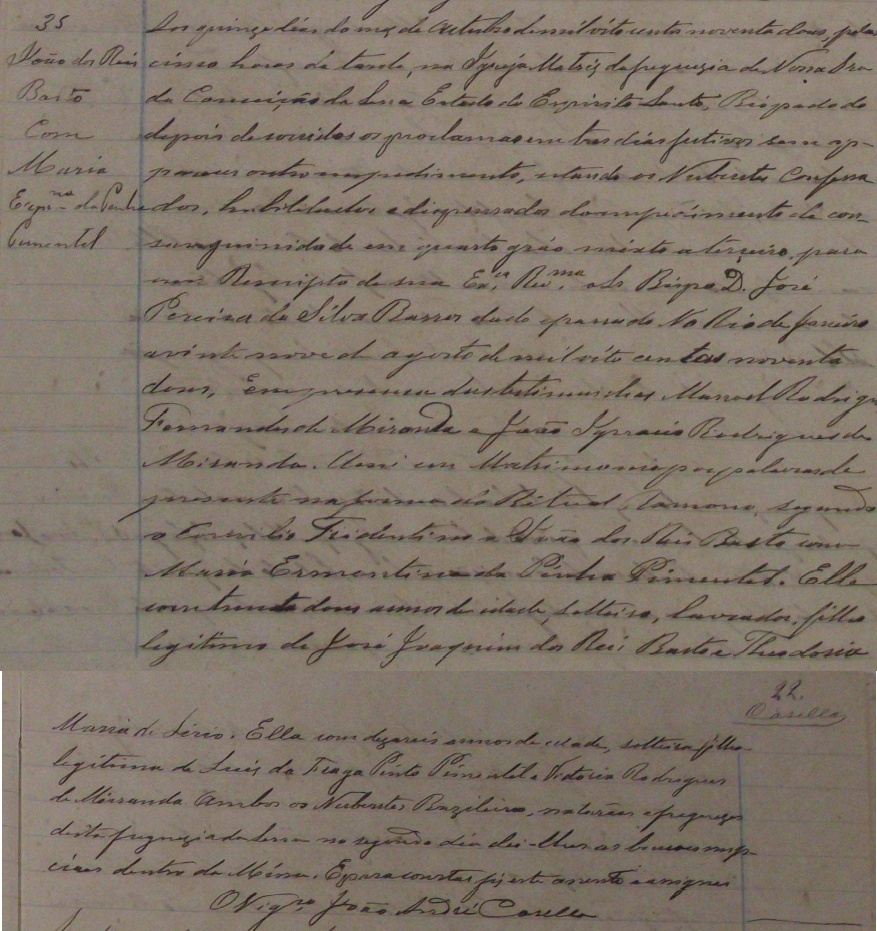 35
João dos Reis
Basto
Com
Maria
Erm.na da Penha
Pimentel
Aos quinze dias do mez de Outubro de mil oito centos noventa dous, pelas
cinco horas da tarde, na Igreja Matriz da freguezia de Nossa Snra
da Conceição da Serra Estado do Espirito Santo, Bispado do
depois de corridos os proclamas em tres dias festivos sem ap-
parecer outro impedimento, estando os Nubentes Confessa
dos, habilitados e dispensados do impedimento de con-
sanguinidade em quarto gráo mixto a terceiro, por
um Rescripto de sua Ex.cia Rev.ma o Sr. Bispo D. José
Pereira da Silva Barros dado e passado No Rio de Janeiro
a vinte nove de agosto de mil oito centos noventa
dous, Em presença das testimunhas Manoel Rodrigu
Fernandes de Miranda e João Ignacio Rodrigues de
Miranda. Uni em Matrimonio por palavras de
presente na forma do Ritual Romano, segundo
o Concilio Tridentino a João dos Reis Basto com
Maria Ermentina da Penha Pimentel. Elle
com trenta dous annos de idade, solteiro, lavrador, filho
legitimo de José Joaquim dos Reis Basto e Theodosia
22.
Casella
Maria de Sirio. Ella com dezaseis annos de idade, solteira filha
legitima de Luis da Fraga Pinto Pimentel e Victoria Rodrigues
de Miranda. Ambos os Nubentes Brazileiros, naturaes e freguezes
desta freguezia da Serra no segundo dia dei-lhes as bencaos nup-
ciaes dentro da Missa. E para constar fiz este assento e assignei
O Vig.ro João André Casella